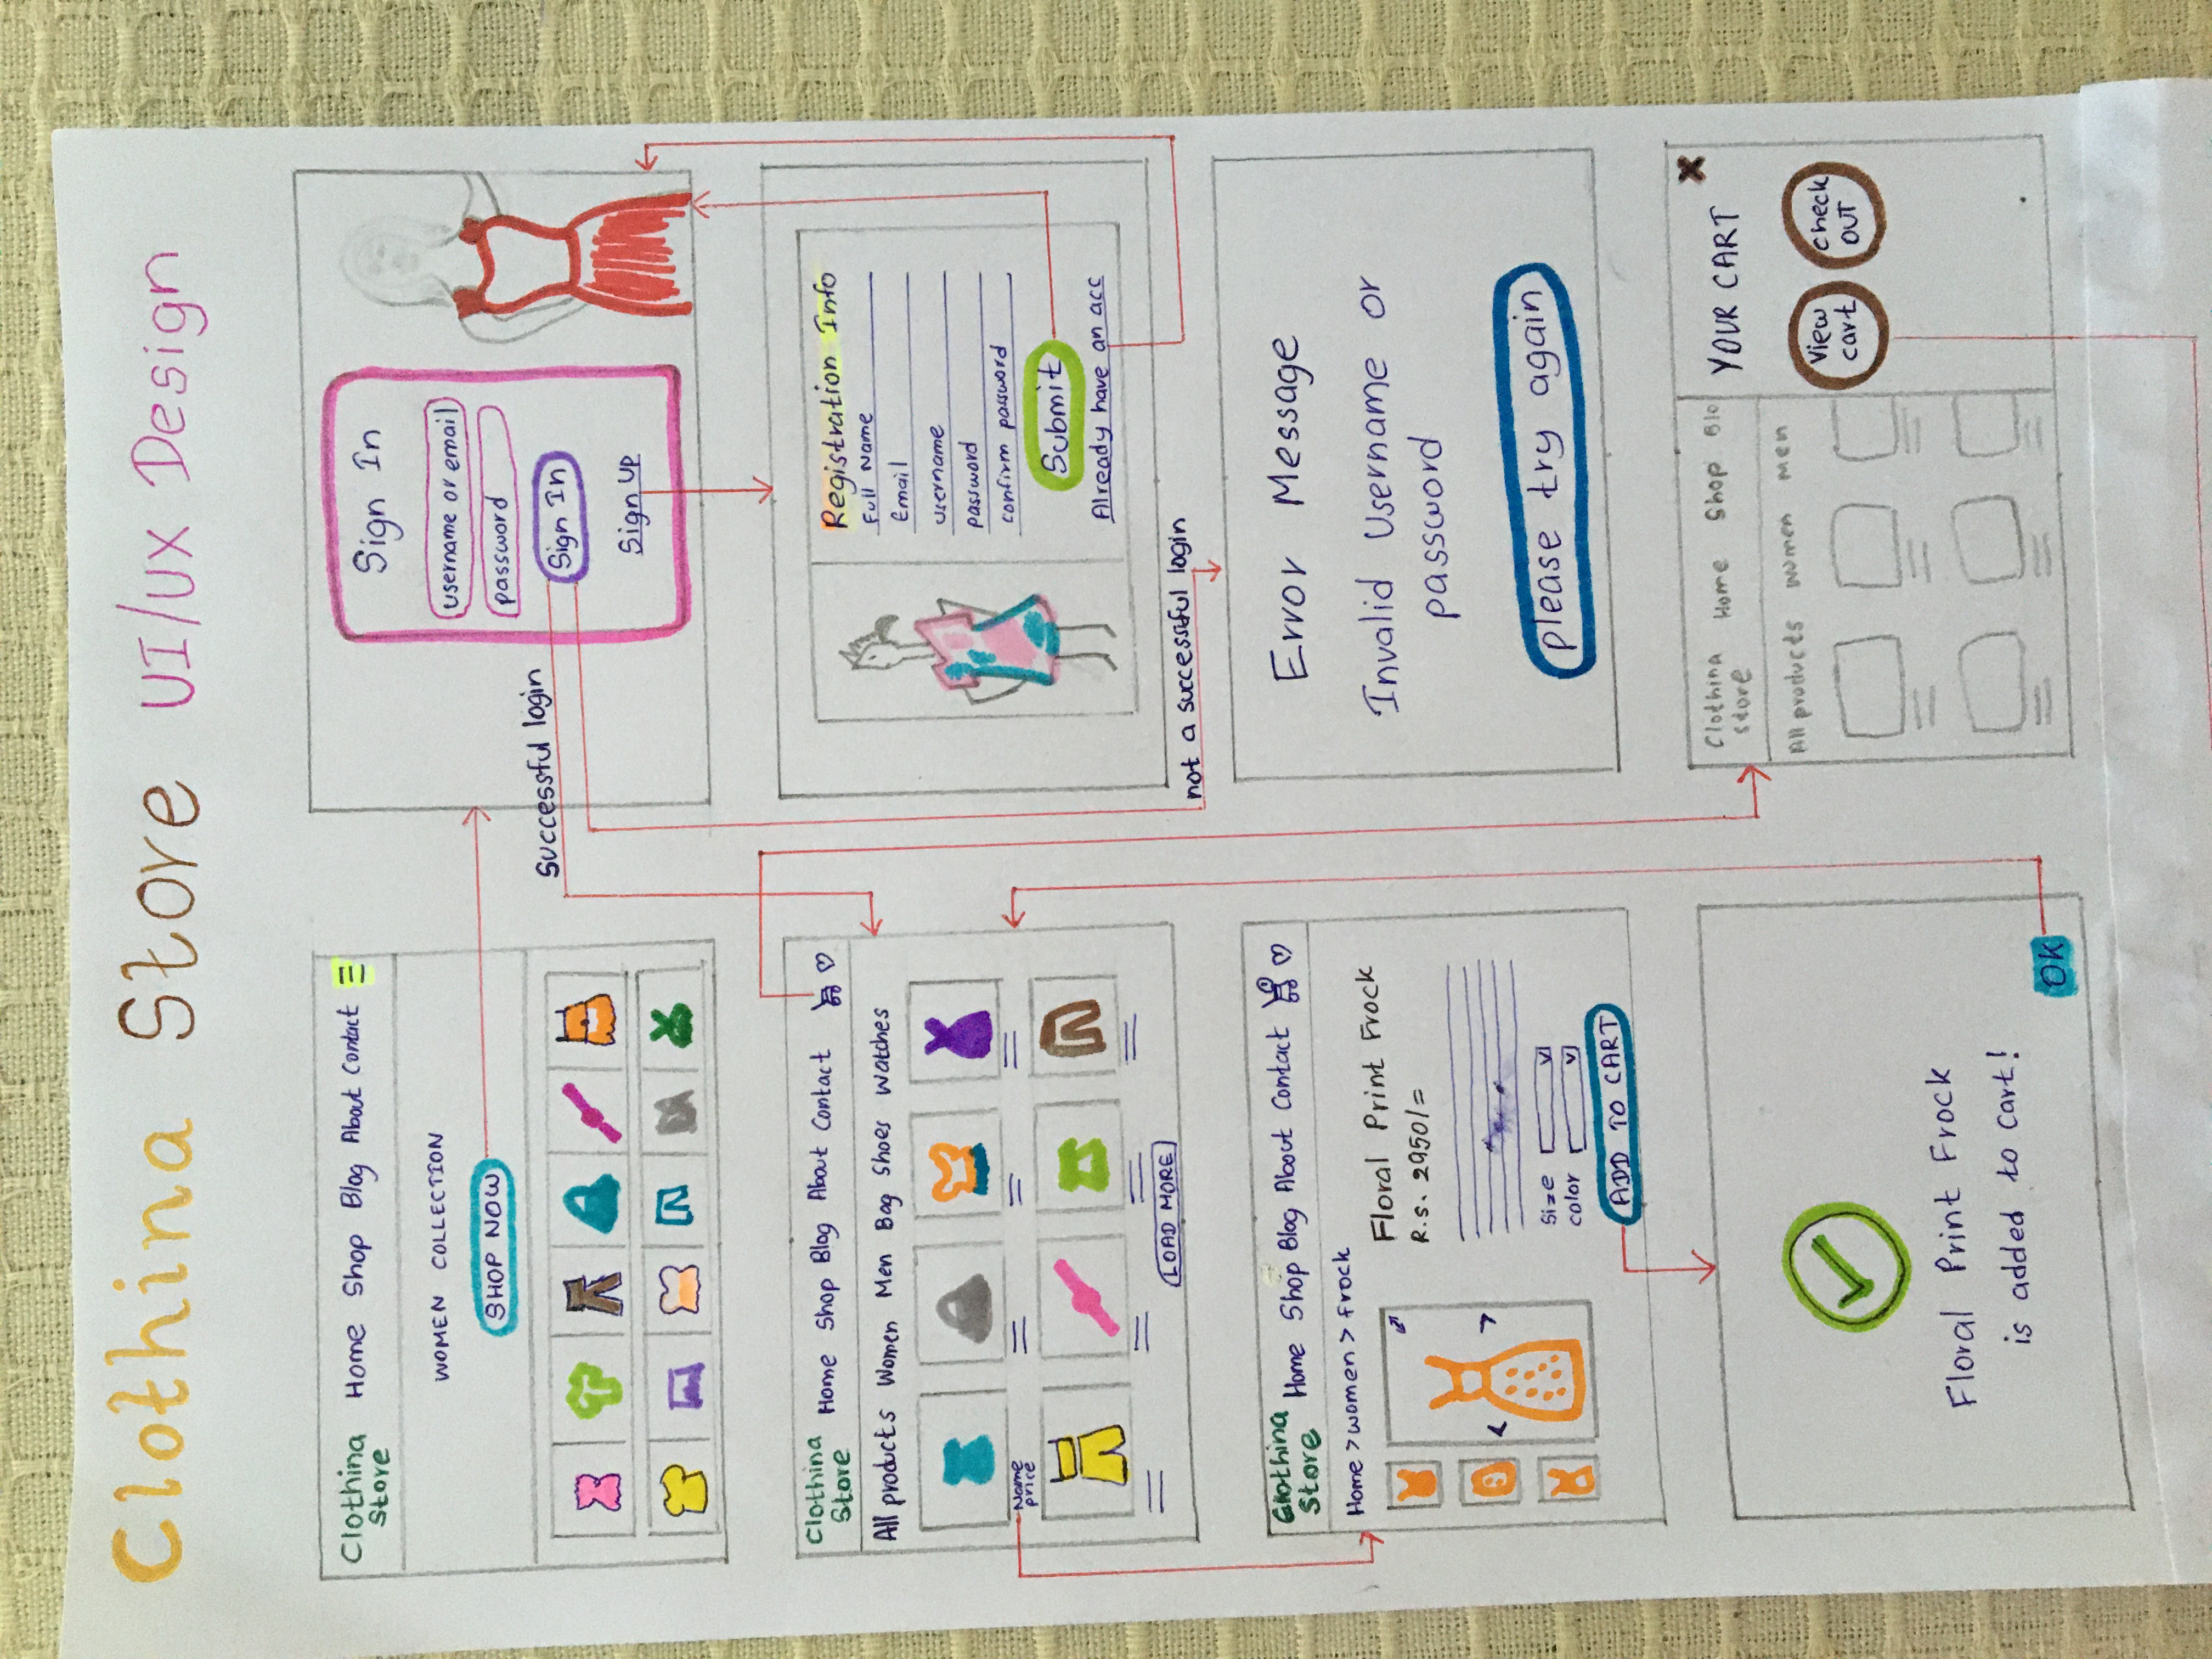 Clothina Store UI/UX Design
Clothina
Store
Home Shop Blog About Contact
WOMEN COLLECTION
SHOP NOW
Sign In
username or email
password
Sign In
Sign Up
Successful login
Clothina
Store
Home Shop Blog About Contact
All products Women Men Bag Shoes Watches
Name
price
LOAD MORE
Registration Info
Full Name
Email
username
password
confirm password
Submit
Already have an acc
not a successful login
Clothina
Store
Home Shop Blog About Contact
Home > women > frock
Floral Print Frock
R.s. 2950/=
Size
color
ADD TO CART
Error Message
Invalid Username or
password
please try again
Floral Print Frock
is added to cart!
OK
Clothina
Store
Home Shop Blo
All products Women Men
YOUR CART
View
cart
Check
OUT